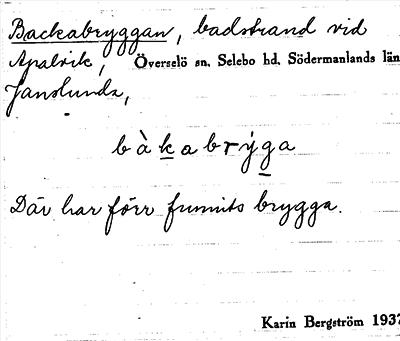 Backabryggan, badstrand vid
Apalvik, Överselö sn, Selebo hd, Södermanlands län
Janslunda,
bàkabrýga
Där har förr funnits brygga.
Karin Bergström 1937